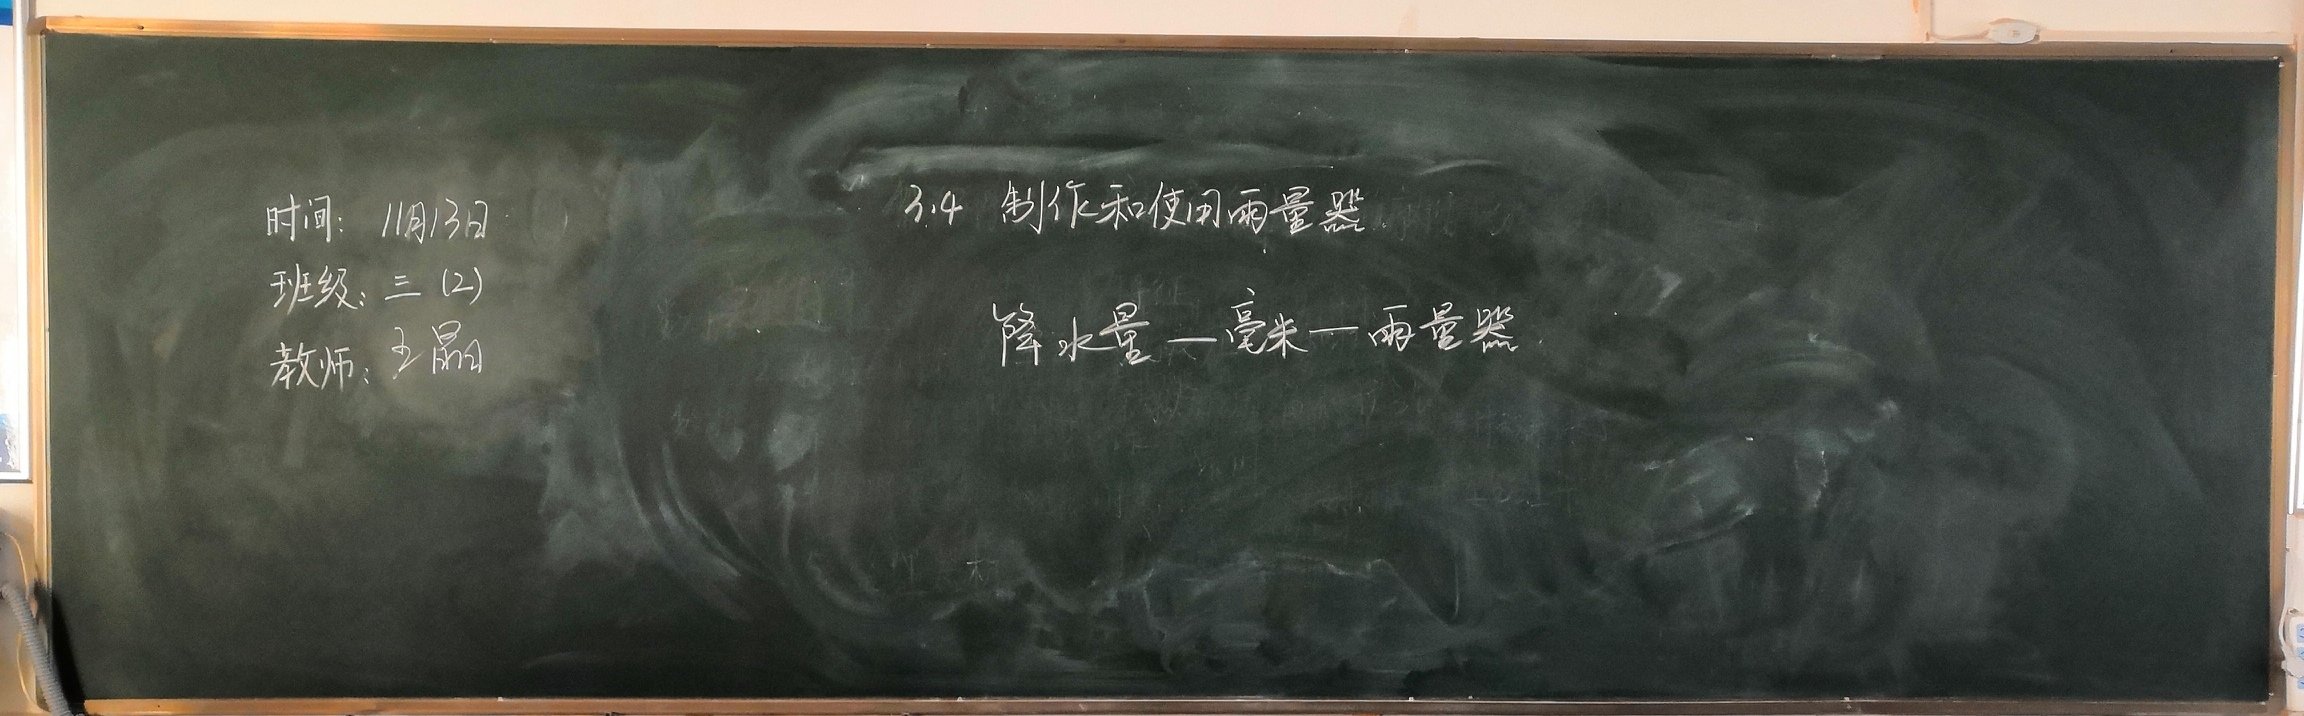 时间：11月13日
班级：三（2）
教师：王晶
3.4 制作和使用雨量器
降水量—毫米—雨量器